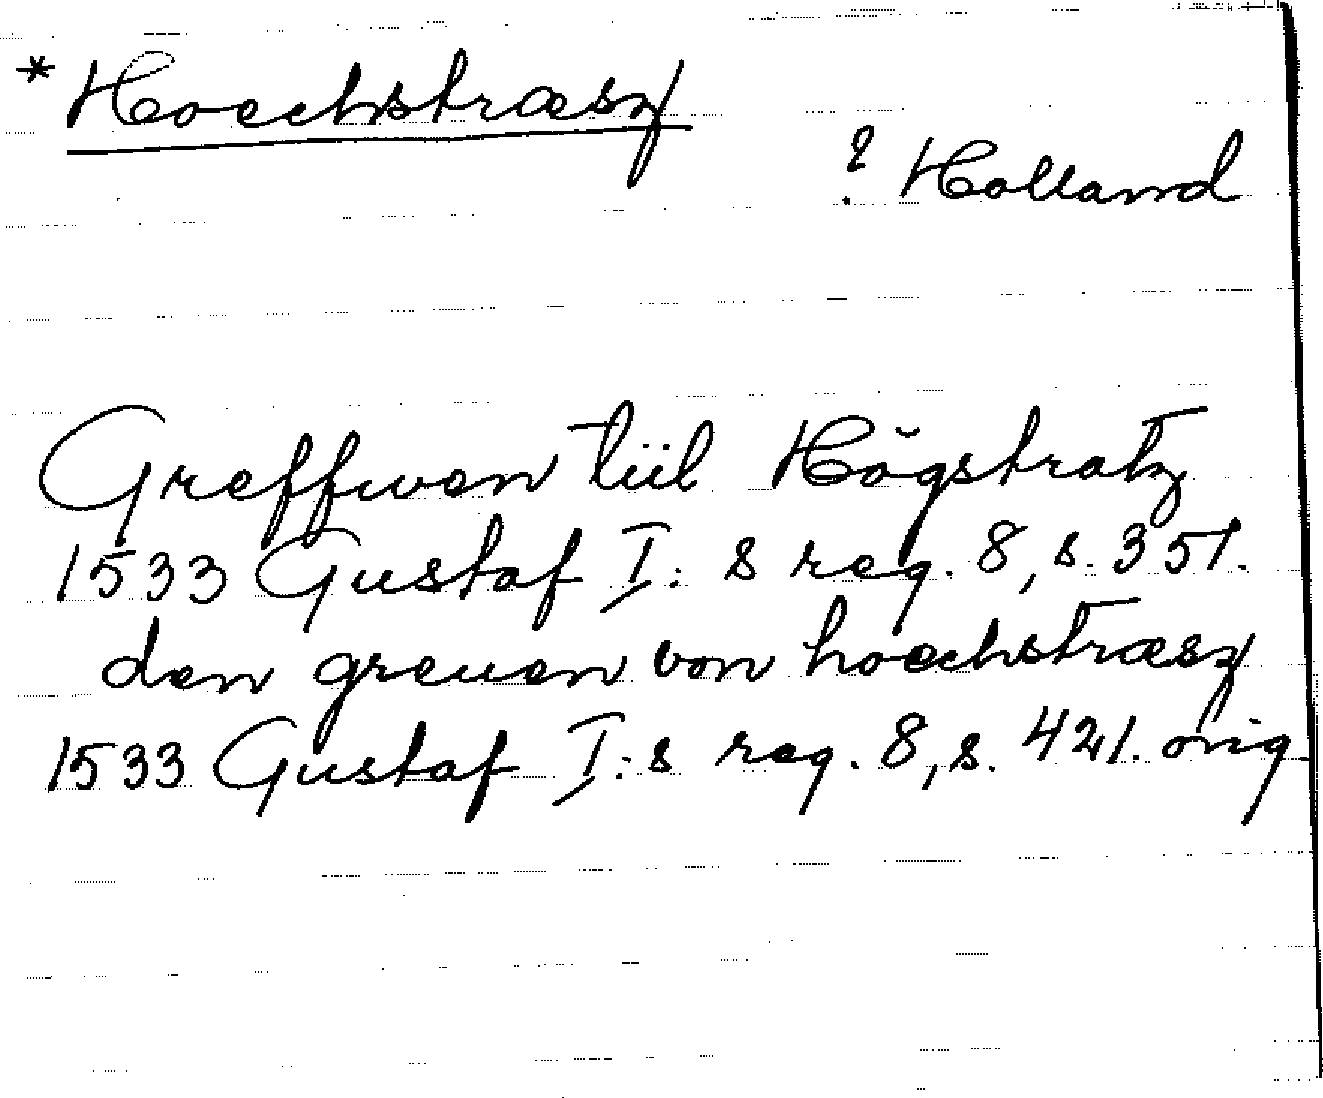 * Hoechstræsz
? Holland
Greffwen tiil Högstratz
1533 Gustaf I: s reg. 8, s. 351.
den greuen von hoechstræsz
1533 Gustaf I: s reg. 8, s. 421. orig